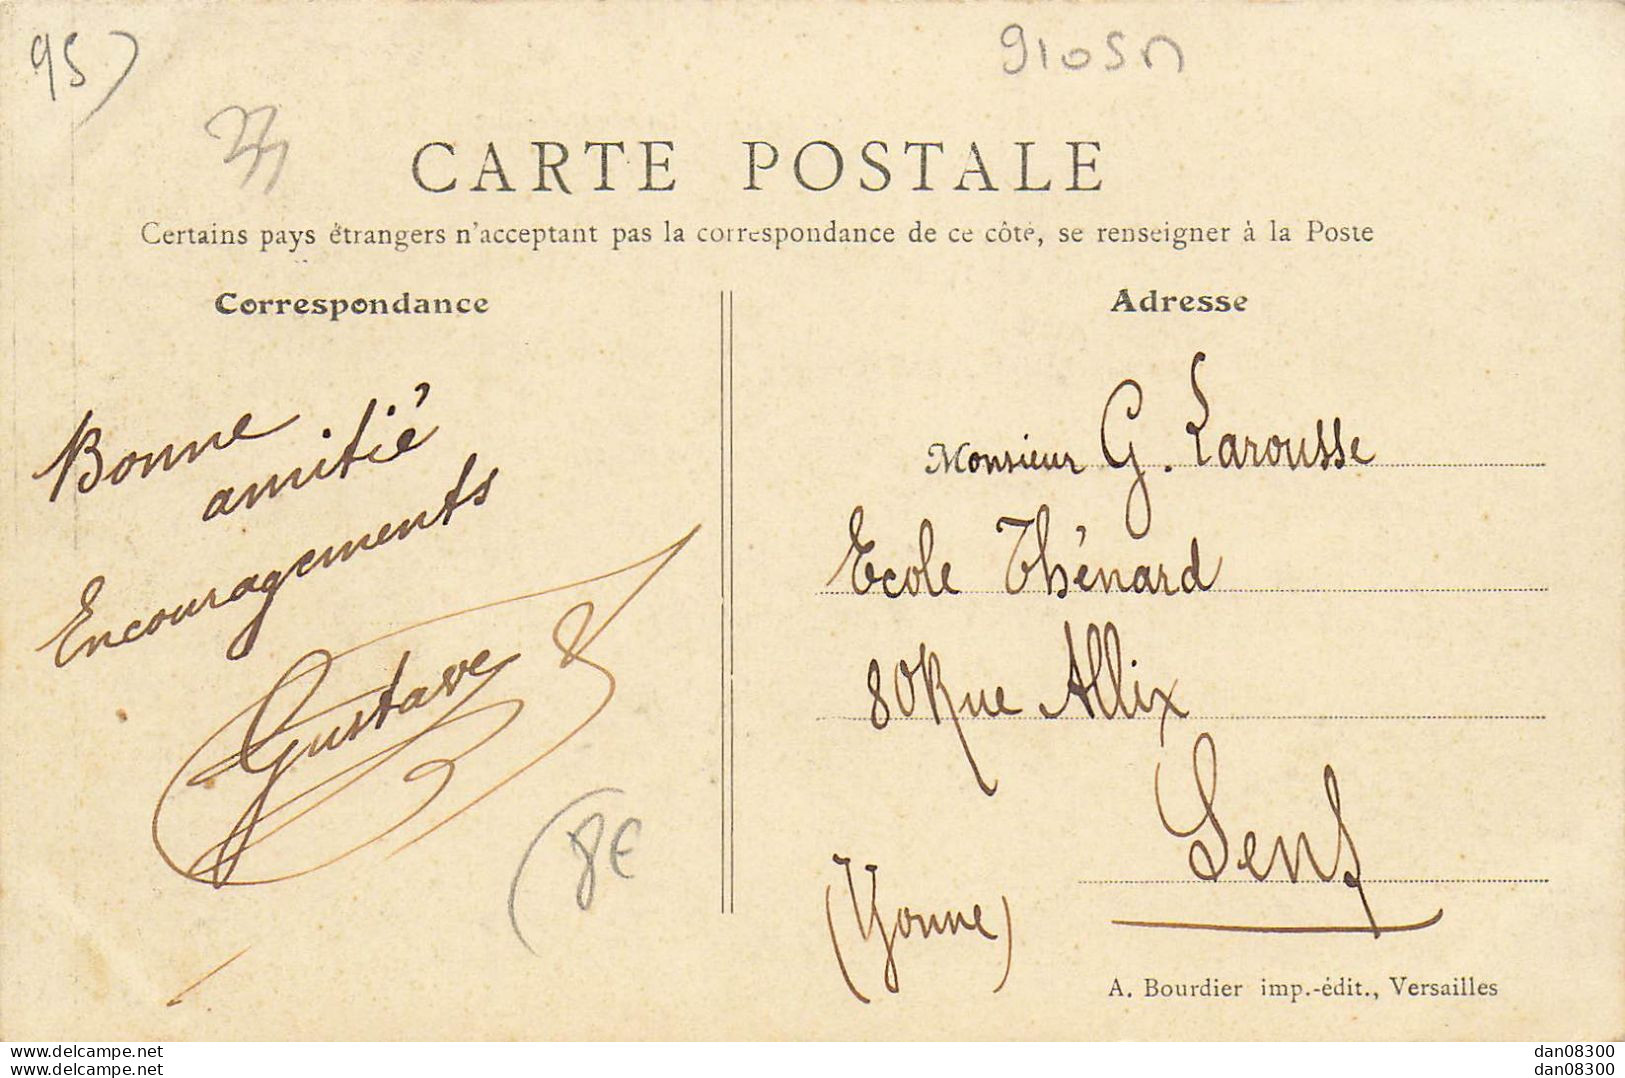 95
9105M
33
CARTE POSTALE
Certains pays étrangers n'acceptant pas la correspondance de ce côté, se renseigner à la Poste
Correspondance
Adresse
Bonne
amitié
Encouragements
Gustave
8€
Monsieur G. Larousse
Ecole Thénard
80 Rue Allix
Sens
(Yonne)
A. Bourdier imp.-édit., Versailles
dan08300
dan08300
dan08300
dan08300